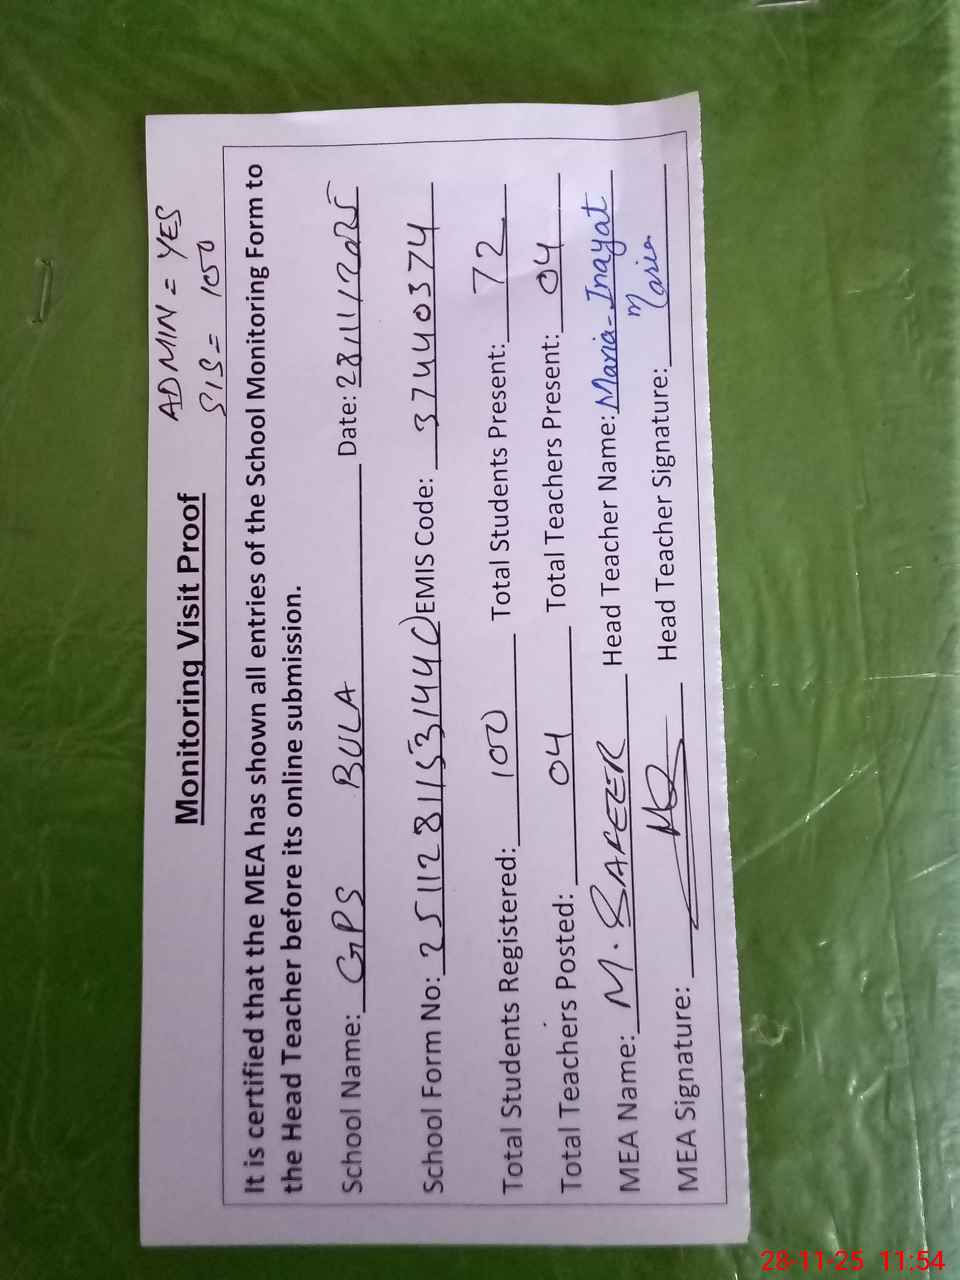 ADMIN = YES
SIS = 1050
Monitoring Visit Proof
It is certified that the MEA has shown all entries of the School Monitoring Form to
the Head Teacher before its online submission.
School Name: GPS BULA Date: 28/11/2025
School Form No: EMIS Code: 37440374
Total Students Registered: 100 Total Students Present: 72
Total Teachers Posted: 04 Total Teachers Present: 04
MEA Name: M. SAFEER Head Teacher Name: Maria-Inayat
MEA Signature: Head Teacher Signature: Maria
28-11-25 11:54